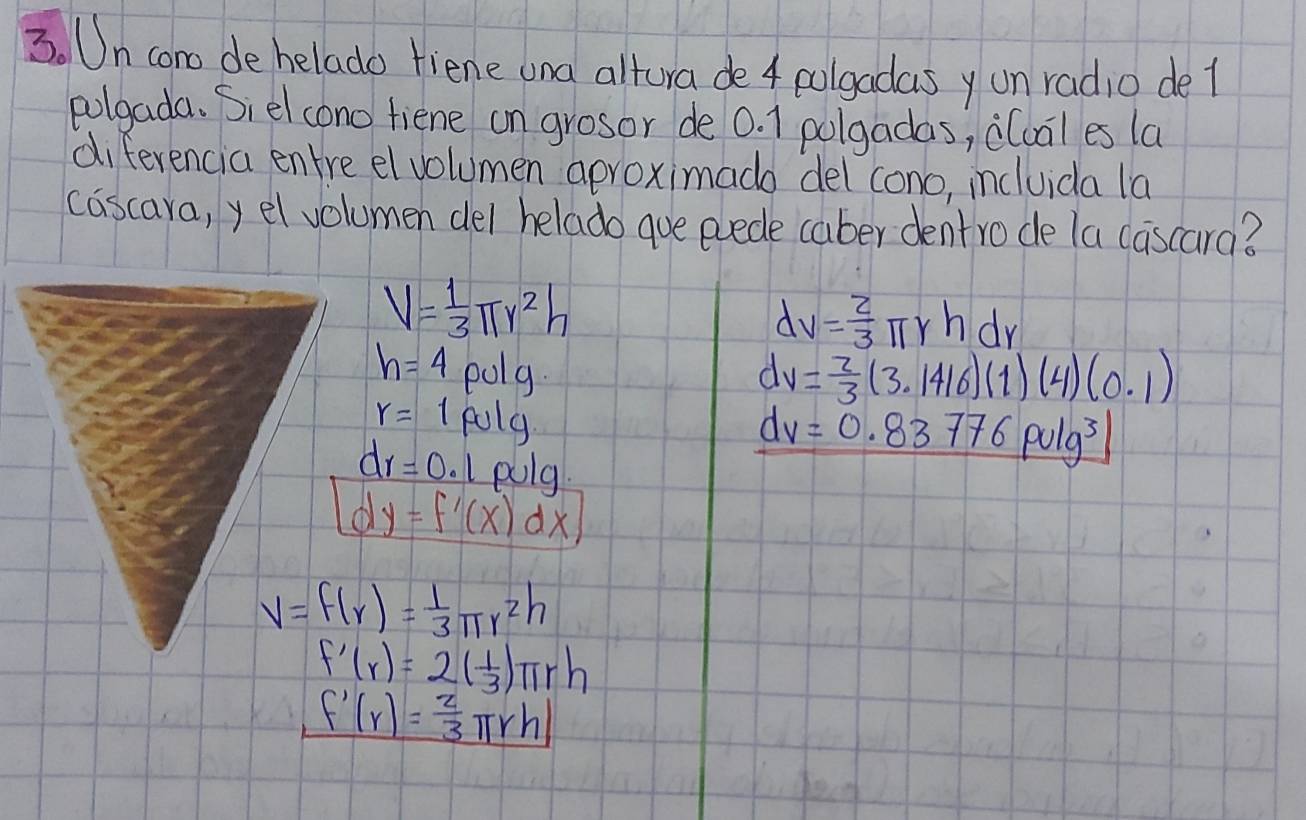 3. Un cono de helado tiene una altura de 4 pulgadas y un radio de 1
pulgada. Si el cono tiene un grosor de 0.1 pulgadas, ¿Cuál es la
diferencia entre el volumen aproximado del cono, incluida la
cáscara, y el volumen del helado que puede caber dentro de la cáscara?
V = 1/3 πr²h
h = 4 pulg.
r = 1 pulg.
dr = 0.1 pulg.
dy = f'(x) dx
V = f(r) = 1/3 πr²h
f'(r) = 2(1/3)πrh
f'(r) = 2/3 πrh
dv = 2/3 πrh dr
dv = 2/3 (3.1416)(1)(4)(0.1)
dv = 0.83776 pulg³